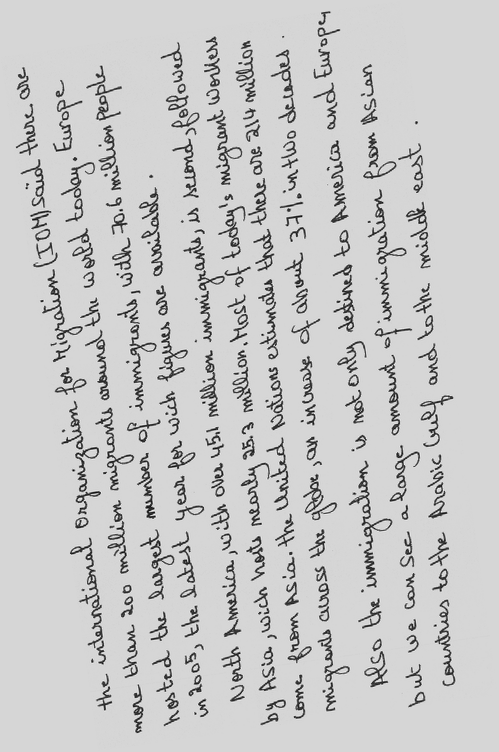 the international Organization for Migration (IOM) said there are
more than 200 million migrants around the world today. Europe
hosted the largest number of immigrants, with 70.6 million people
in 2005, the latest year for wich figures are available.
North America, with over 45.1 million immigrants, is second, followed
by Asia, wich hosts nearly 25.3 million. Most of today's migrant workers
come from Asia. the United Nations estimates that there are 214 million
migrants across the globe, an increase of about 37% in two decades.
Also the immigration is not only defined to America and Europe,
but we can see a large amount of immigration from Asian
countries to the Arabic Gulf and to the middle east.